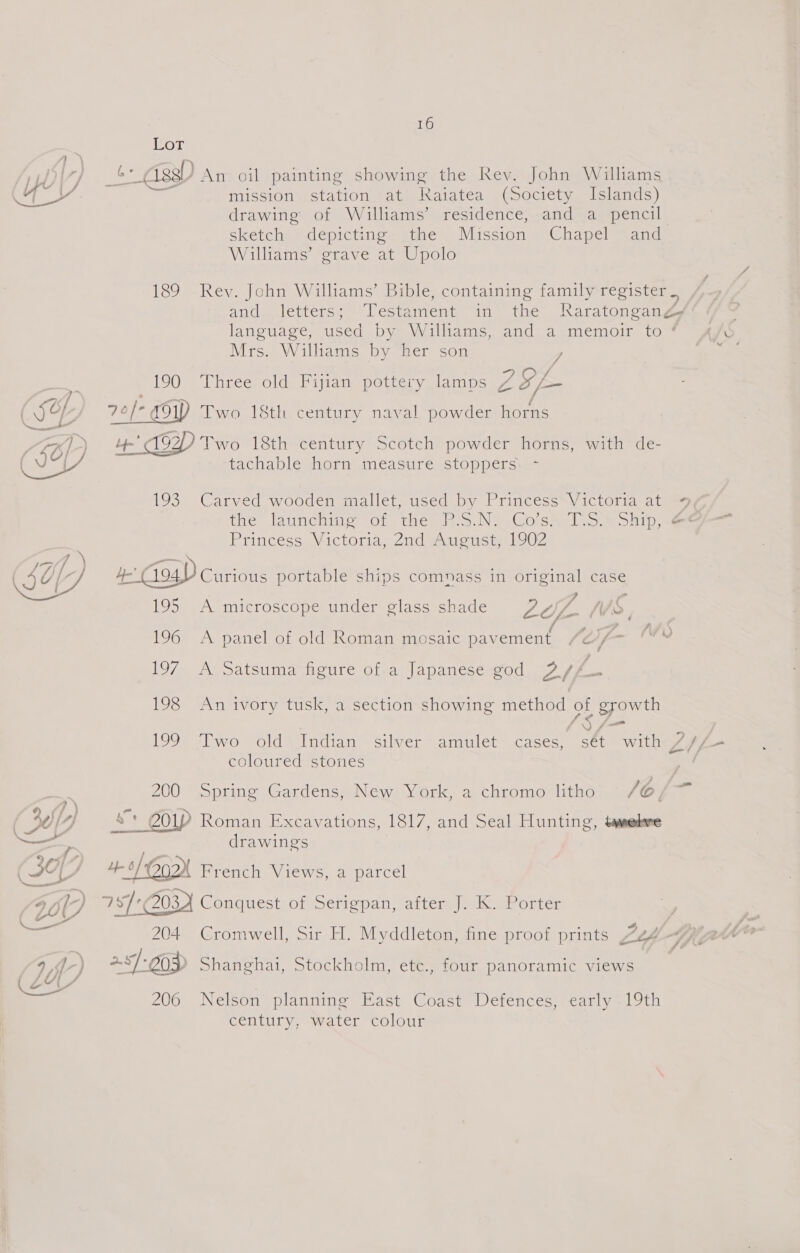 16
LOT
188 An oil painting showing the Rev. John Williams
mission station at Raiatea (Society Islands)
drawing of Williams' residence, and a pencil
sketch depicting the Mission Chapel and
Williams' grave at Upolo
189 Rev. John Williams' Bible, containing family register,
and letters; Testament in the Raratongan
language, used by Williams, and a memoir to
Mrs. Williams by her son
190 Three old Fijian pottery lamps 28/-
50/- 70/- 191 Two 18th century naval powder horns
50/- 192 Two 18th century Scotch powder horns, with de-
tachable horn measure stoppers
193 Carved wooden mallet, used by Princess Victoria at
the launching of the P.S.N. Co's. T.S. Ship,
Princess Victoria, 2nd August, 1902
50/- 194 Curious portable ships compass in original case
195 A microscope under glass shade 20/- NS
196 A panel of old Roman mosaic pavement NS
197 A Satsuma figure of a Japanese god 21/-
198 An ivory tusk, a section showing method of growth
199 Two old Indian silver amulet cases, set with 21/-
coloured stones
200 Spring Gardens, New York, a chromo litho 10/-
30/- 201 Roman Excavations, 1817, and Seal Hunting,
drawings
30/- 202 French Views, a parcel
20/- 75/- 203 Conquest of Serigpan, after J. K. Porter
204 Cromwell, Sir H. Myddleton, fine proof prints
20/- 25/- 205 Shanghai, Stockholm, etc., four panoramic views
206 Nelson planning East Coast Defences, early 19th
century, water colour